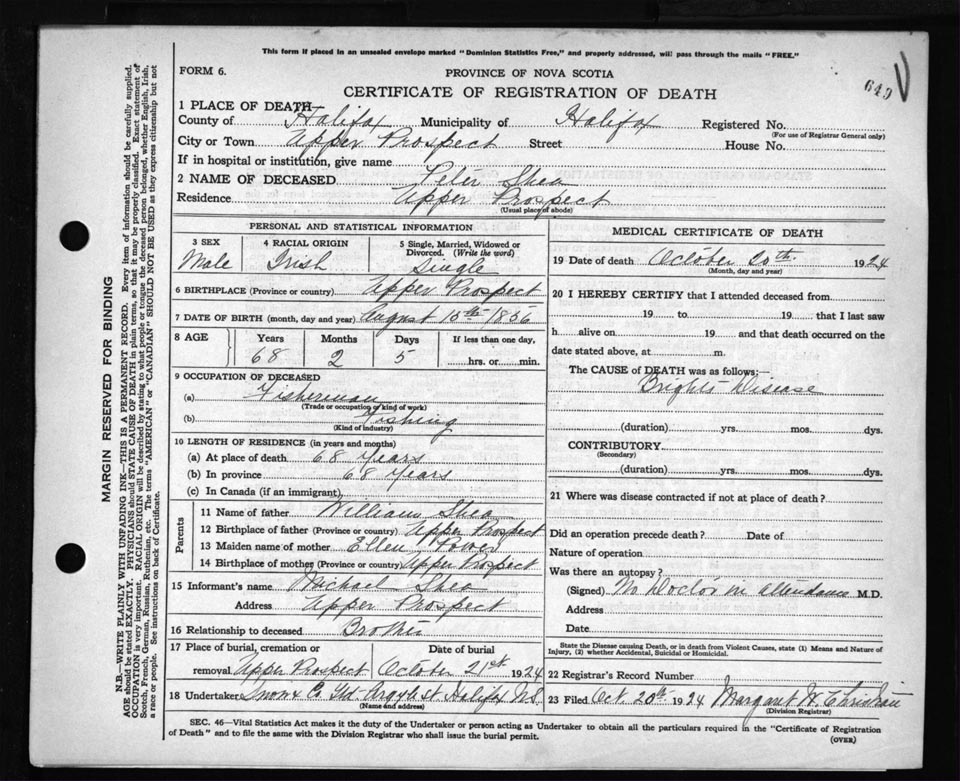 This form if placed in an unsealed envelope marked "Dominion Statistics Free," and properly addressed, will pass through the mails "FREE."
FORM 6.
PROVINCE OF NOVA SCOTIA
649
CERTIFICATE OF REGISTRATION OF DEATH
1 PLACE OF DEATH
County of Halifax Municipality of Halifax Registered No.
(For use of Registrar General only)
City or Town Upper Prospect Street House No.
If in hospital or institution, give name
2 NAME OF DECEASED Peter Shea
Residence Upper Prospect
(Usual place of abode)
MARGIN RESERVED FOR BINDING
N.B.—WRITE PLAINLY WITH UNFADING INK—THIS IS A PERMANENT RECORD. Every item of information should be carefully supplied.
AGE should be stated EXACTLY. PHYSICIANS should STATE CAUSE OF DEATH in plain terms, so that it may be properly classified. Exact statement of
OCCUPATION is very important. RACIAL ORIGIN will be described by stating to what people or tongue the deceased person belonged, whether English, Irish,
Scotch, French, German, Russian, Ruthenian, etc. The terms "AMERICAN" or "CANADIAN" SHOULD NOT BE USED as they express citizenship but not
a race or people. See instructions on back of Certificate.
PERSONAL AND STATISTICAL INFORMATION
3 SEX
Male
4 RACIAL ORIGIN
Irish
5 Single, Married, Widowed or
Divorced. (Write the word)
Single
6 BIRTHPLACE (Province or country) Upper Prospect
7 DATE OF BIRTH (month, day and year) August 15th 1856
8 AGE Years Months Days If less than one day,
68 2 5 hrs. or min.
9 OCCUPATION OF DECEASED
(a) Fisherman
(Trade or occupation or kind of work)
(b) Fishing
(Kind of industry)
10 LENGTH OF RESIDENCE (in years and months)
(a) At place of death 68 Years
(b) In province 68 Years
(c) In Canada (if an immigrant)
Parents
11 Name of father William Shea
12 Birthplace of father (Province or country) Upper Prospect
13 Maiden name of mother Ellen Power
14 Birthplace of mother (Province or country) Upper Prospect
15 Informant's name Michael Shea
Address Upper Prospect
16 Relationship to deceased Brother
17 Place of burial, cremation or Date of burial
removal Upper Prospect October 21st 1924
18 Undertaker Snow & Co Ltd Argyle St Halifax N.S.
(Name and address)
MEDICAL CERTIFICATE OF DEATH
19 Date of death October 20th 1924
(Month, day and year)
20 I HEREBY CERTIFY that I attended deceased from
19 to 19 that I last saw
h alive on 19 and that death occurred on the
date stated above, at m.
The CAUSE of DEATH was as follows:—
Brights Disease
(duration) yrs. mos. dys.
CONTRIBUTORY
(Secondary)
(duration) yrs. mos. dys.
21 Where was disease contracted if not at place of death?
Did an operation precede death? Date of
Nature of operation
Was there an autopsy?
(Signed) No Doctor in attendance M.D.
Address
Date
State the Disease causing Death, or in death from Violent Causes, state (1) Means and Nature of
Injury, (2) whether Accidental, Suicidal or Homicidal.
22 Registrar's Record Number
23 Filed Oct. 20th 1924 Margaret W. Christian
(Division Registrar)
SEC. 46—Vital Statistics Act makes it the duty of the Undertaker or person acting as Undertaker to obtain all the particulars required in the "Certificate of Registration
of Death" and to file the same with the Division Registrar who shall issue the burial permit.
(OVER)